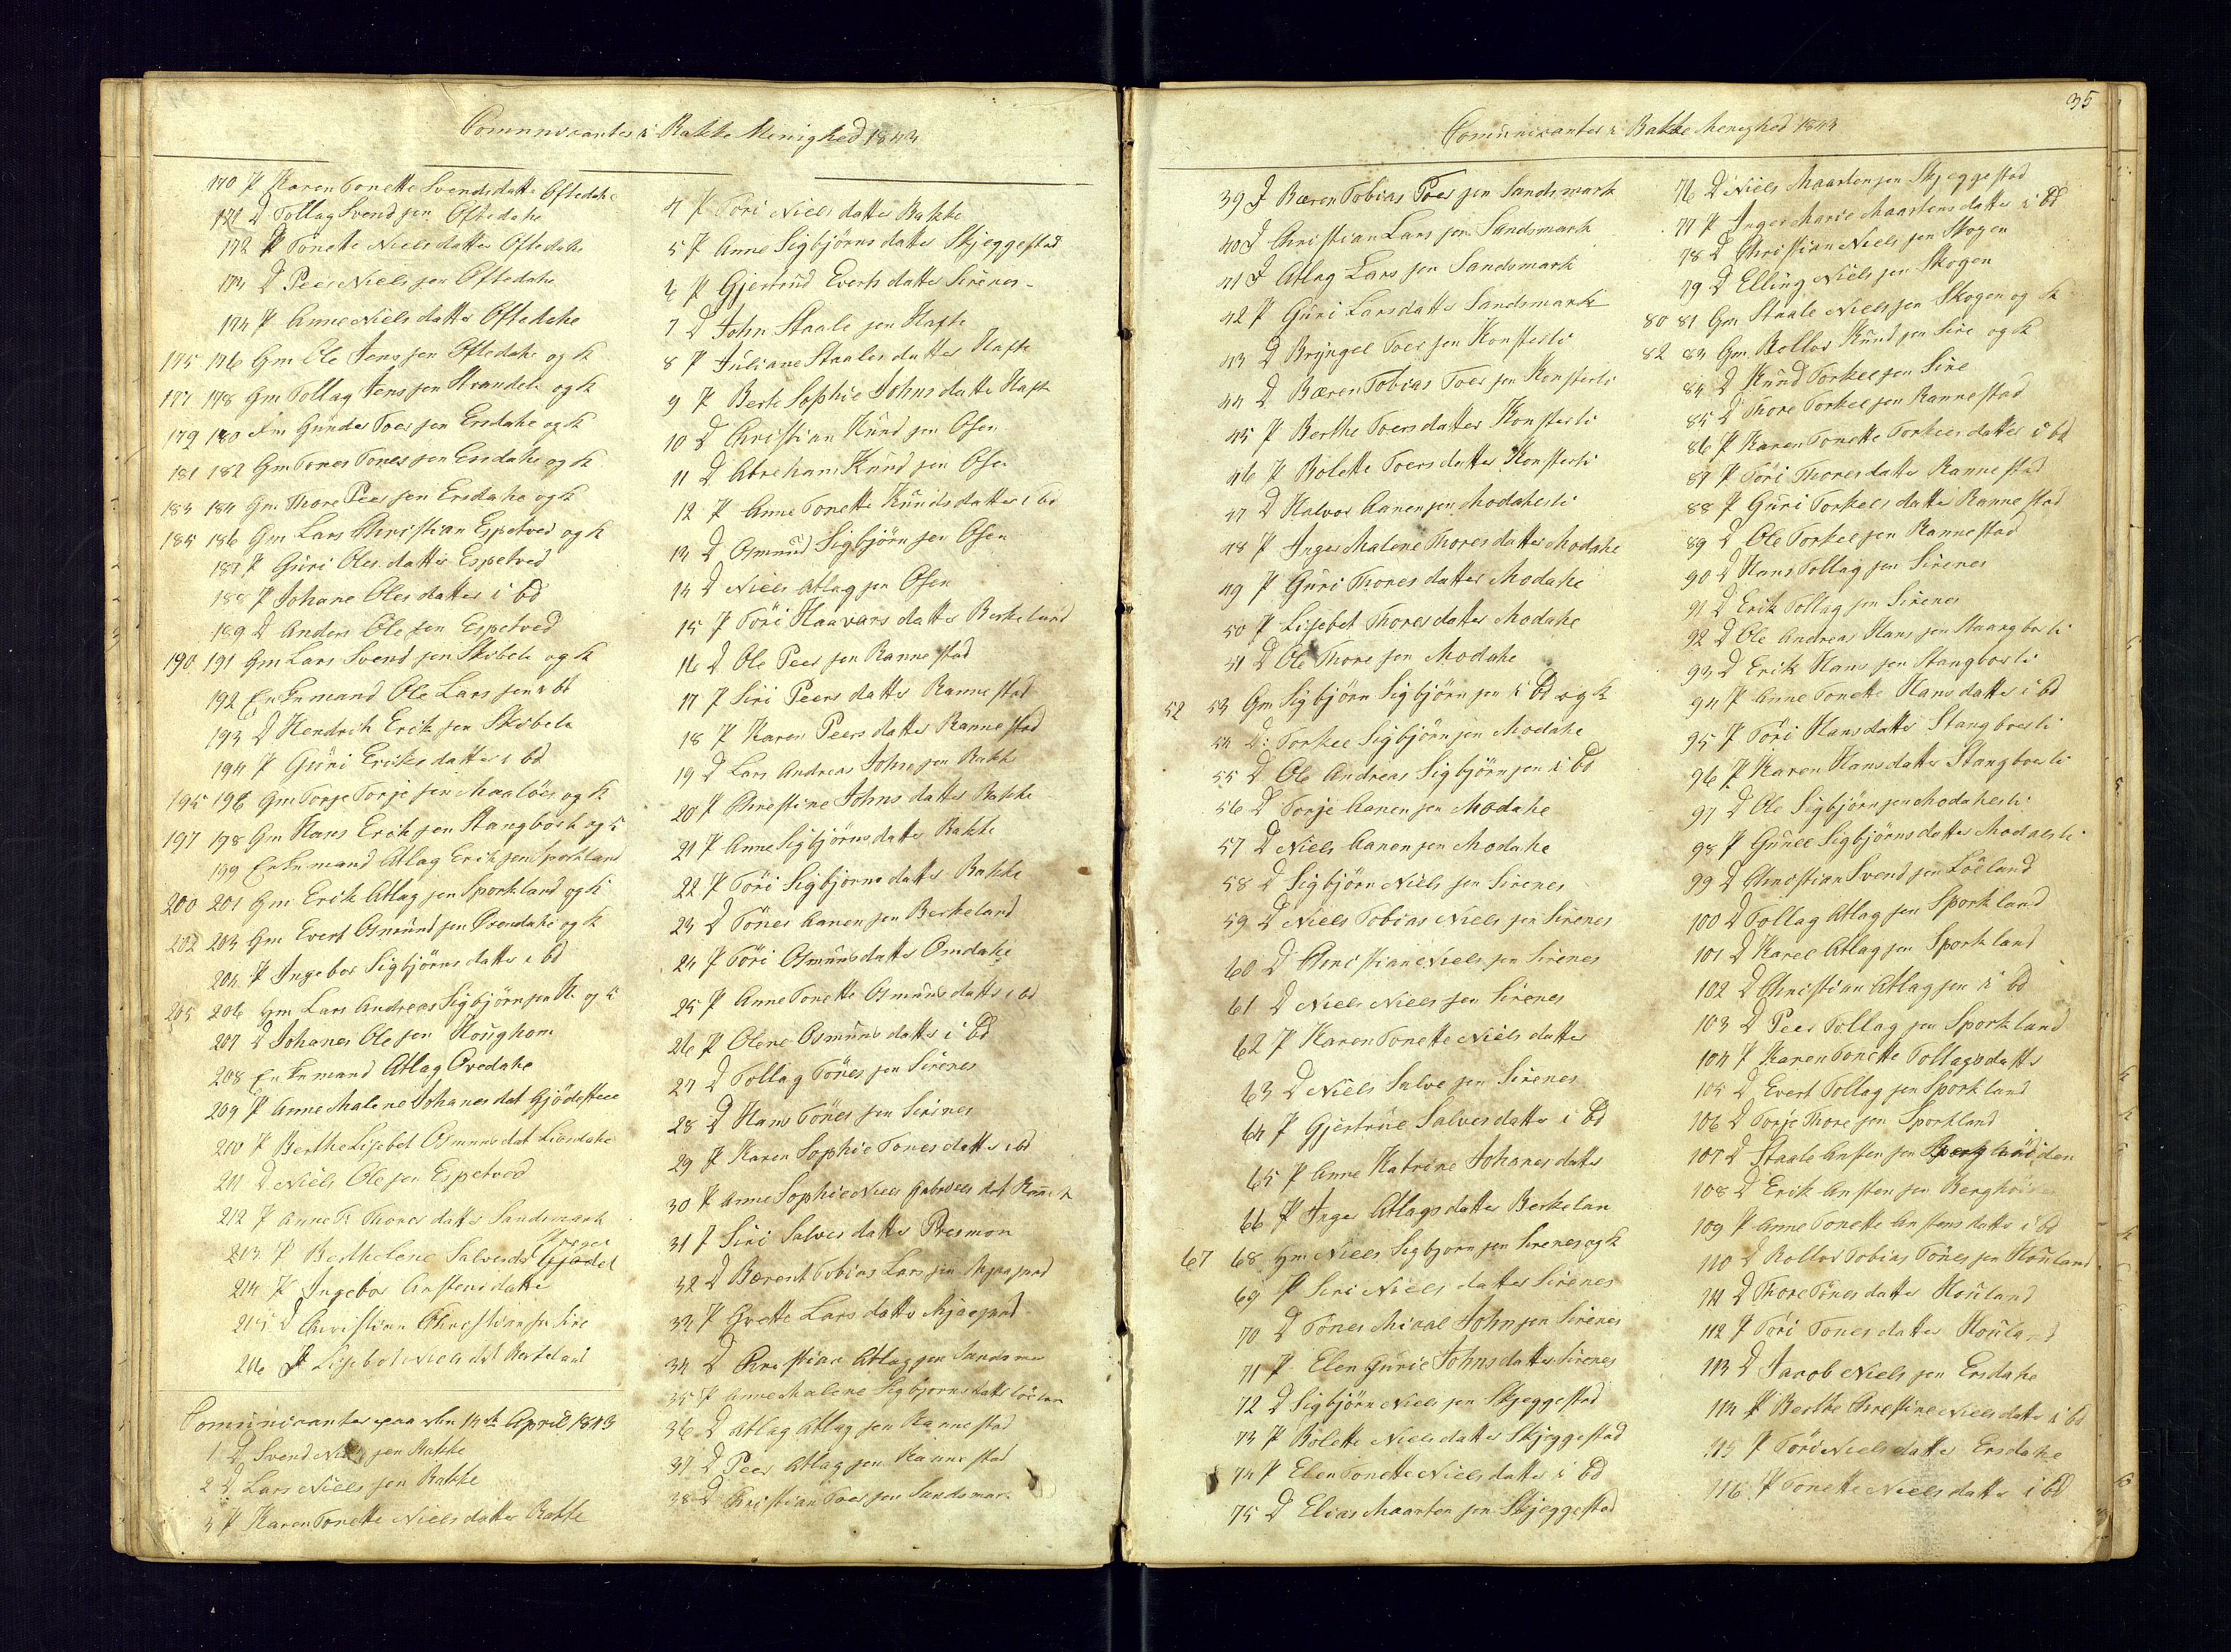 Communicanter i Bakke Menighed 1843
170 P Karen Tonette Svendsdatter Oftedahe
171 D Tollag Svend sen Oftedahe
172 P Tonette Nielsdatter Oftedahe
173 D Peer Niels sen Oftedahe
174 P Anne Niels datter Oftedahe
175 176 Gm Ole Jens sen Oftedahe og K
177 178 Gm Tollag Jens sen Strandeli og K
179 180 Gm Gunder Toer sen Ersdahe og K
181 182 Gm Tones Tones sen Ersdahe og K
183 184 Gm Thore Peer sen Ersdahe og K
185 186 Gm Lars Christian Espetved og K
187 P Guri Oles datter Espetved
188 P Johane Oles datter i bd
189 D Anders Ole sen Espetved
190 191 Gm Lars Svend sen Skibeli og K
192 Enkemand Ole Lars sen i bd
193 D Hendrik Erik sen Skibeli
194 P Guri Eriks datter i bd
195 196 Gm Torje Torje sen Maaløe og K
197 198 Gm Hans Erik sen Stangborli og K
199 Enkemand Atlag Erik sen Sporkland
200 201 Gm Erik Atlag sen Sporkland og K
202 203 Gm Evert Osmund sen Ovendahe og K
204 P Ingebor Sigbjørns datter i bd
205 206 Gm Lars Andreas Sigbjørn sen H og K
207 D Johanes Ole sen Houghom
208 Enkemand Atlag Ovedahe
209 P Anne Malene Johanes dat Gjødesteee
210 P Berthe Lisebet Osmuns dat Liosdahe
211 D Niels Ole sen Espetved
212 P Anne K Thores datter Sandsmark
213 P Berthelene Salvesdt
214 P Ingebor Anstens datter
215 D Christian Christian sen Sire
216 P Lisebet Niels dat Berkeland
Comunicanter paa den 14de April 1843
1 D Svend Niels sen Bakke
2 D Lars Niels sen Bakke
3 P Karen Tonette Niels datter Bakke
4 P Tori Niels datter Bakke
5 P Anne Sigbjørns datter Skjeggestad
6 P Gjertrud Everts datter Sirenes
7 D John Staale sen Hafte
8 P Juliane Staales datter Hafte
9 P Berte Sophie Johns datter Hafte
10 D Christian Knud sen Osen
11 D Abreham Knud sen Osen
12 P Anne Tonette Knuds datter i bd
13 D Osmund Sigbjørn sen Osen
14 D Niels Atlag sen Osen
15 P Tôri Haavars datter Berkeland
16 D Ole Peer sen Rannestad
17 P Siri Peers datter Rannestad
18 P Karen Peers datter Rannestad
19 D Lars Andreas John sen Bakke
20 P Chrestine Johns datter Bakke
21 P Anne Sigbjørns datter Bakke
22 P Töri Sigbjorns datter Bakke
23 D Tönes Aanen sen Berkeland
24 P Töri Osmuns datter Omdahe
25 P Anne Tonette Osmuns datter i bd
26 P Olene Osmuns datter i bd
27 D Tollag Tönes sen Sirenes
28 D Hans Tönes sen Sirines
29 P Karen Sophie Tones datter i bd
30 P Anne Sophie Niels Gabriels dat
31 P Siri Salves datter Presmon
32 D Bærent Tobias Lars sen
33 P Grette Lars datter
34 D Christian Atlag sen Sandsmar
35 P Anne Malene Sigbjorns datter
36 D Atlag Atlag sen Rannestad
37 D Peer Atlag sen Rannestad
38 D Christian Toer sen Sandsmar
35
Comunicanter i Bakke Menighed 1843
39 D Bæren Tobias Toer sen Sandsmark
40 D Christian Lars sen Sandsmark
41 D Atlag Lars sen Sandsmark
42 P Guri Lars datter Sandsmark
43 D Bryngel Toer sen Konsterli
44 D Bæren Tobias Toer sen Konsterli
45 P Berthe Toers datter Konsterli
46 P Bolette Toers datter Konsterli
47 D Halvor Aanen sen Modahesli
48 P Inger Malene Thores datter Modahe
49 P Guri Thores datter Modahe
50 P Lisebet Thores datter Modahe
51 D Ole Thore sen Modahe
52 53 Gm Sigbjörn Sigbjörn sen i bd og K
54 D: Torkel Sigbjörn sen Modahe
55 D Ole Andreas Sigbjörn sen i bd
56 D Torje Aanen sen Modahe
57 D Niels Aanen sen Modahe
58 D Sigbjörn Niels sen Sirenes
59 D Niels Tobias Niels sen Sirenes
60 D Christian Niels sen Sirenes
61 D Niels Niels sen Sirenes
62 P Karen Tonette Niels datter
63 D Niels Salve sen Sirenes
64 P Gjertrue Salves datter i bd
65 P Anne Katrine Johanes datter
66 P Inger Atlags datter Berkelan
67 68 Gm Niels Sigbjorn sen Sirenes og K
69 P Siri Niels datter Sirenes
70 D Tönes Mikal John sen Sirenes
71 P Elen Gurie Johns datter Sirenes
72 D Sigbjörn Niels sen Skjeggestad
73 P Bolette Niels datter Skjeggestad
74 P Elen Tonette Niels datter i bd
75 D Elias Maarten sen Skjeggestad
76 D Niels Maarten sen Skjeggestad
77 P Inger Marie Maartens datter i bd
78 D Christian Niels sen Skogen
79 D Elling Niels sen Skogen
80 81 Gm Staale Niels sen Skogen og K
82 83 Gm Rollov Knud sen Sire og K
84 D Knud Torkel sen Sire
85 D Thore Torkel sen Rannestad
86 P Karen Tonette Torkels datter i bd
87 P Töri Thores datter Rannestad
88 P Guri Torkels datter Rannestad
89 D Ole Torkel sen Rannestad
90 D Hans Tollag sen Sirenes
91 D Erik Tollag sen Sirenes
92 D Ole Andreas Hans sen Staangborli
93 D Erik Hans sen Stangborli
94 P Anne Tonette Hans datter i bd
95 P Töri Hans datter Stangborli
96 P Karen Hans datter Stangborli
97 D Ole Sigbjörn sen Modahesli
98 P Gunel Sigbjörns datter Modalsli
99 D Christian Svend sen Löeland
100 D Tollag Atlag sen Sporkland
101 D Karel Atlag sen Sporkland
102 D Christian Atlag sen i bd
103 D Peer Tollag sen Sporkland
104 P Karen Tonette Tollags datter
105 D Evert Tollag sen Sporkland
106 D Torje Thore sen Sporkland
107 D Staale Ansten sen
108 D Erik Ansten sen
109 P Anne Tonette Anstens datter i bd
110 D Rollov Tobias Tönes sen Houland
111 D Thore Tönes datter Houland
112 P Töri Tones datter Houland
113 D Jacob Niels sen Ersdahe
114 P Berthe Chrestine Niels datter i bd
115 P Töri Niels datter Ersdahe
116 P Tonette Niels datter i bd